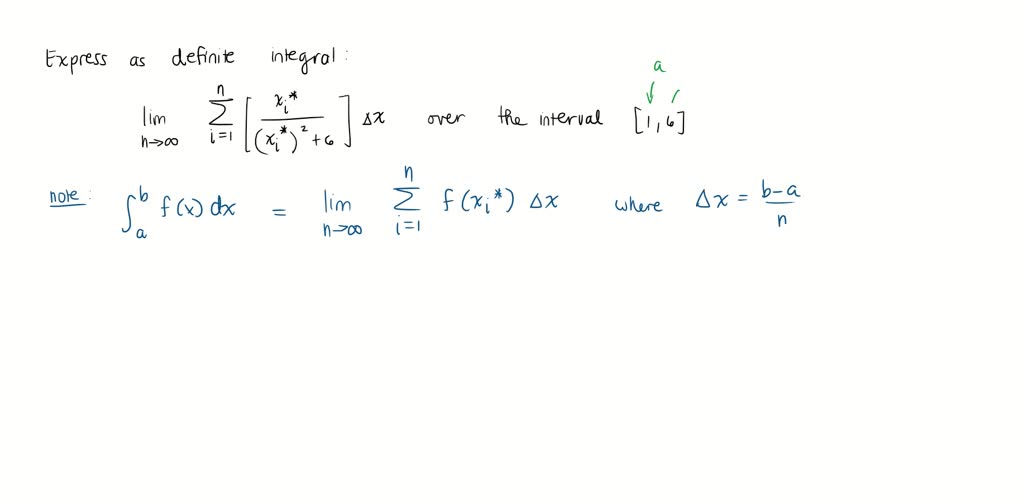 Express as definite integral:
a
lim n→∞ n Σ i=1 [ xᵢ* / (xᵢ*)² + 6 ] Δx over the interval [1, 6]
note: ∫ₐᵇ f(x) dx = lim n→∞ n Σ i=1 f(xᵢ*) Δx where Δx = b-a / n